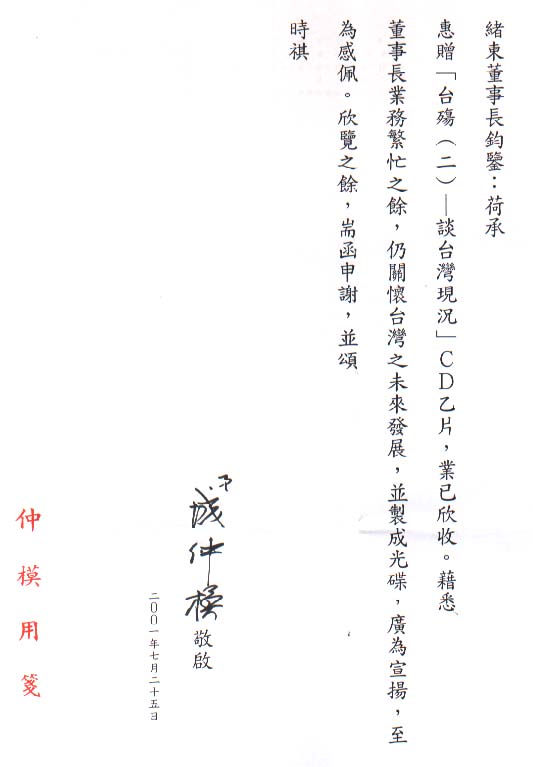 緒東董事長鈞鑒：荷承
惠贈「台殤（二）—談台灣現況」ＣＤ乙片，業已欣收。藉悉
董事長業務繁忙之餘，仍關懷台灣之未來發展，並製成光碟，廣為宣揚，至
為感佩。欣覽之餘，耑函申謝，並頌
時祺
弟
城仲模 敬啟
二００一年七月二十五日
仲模用箋